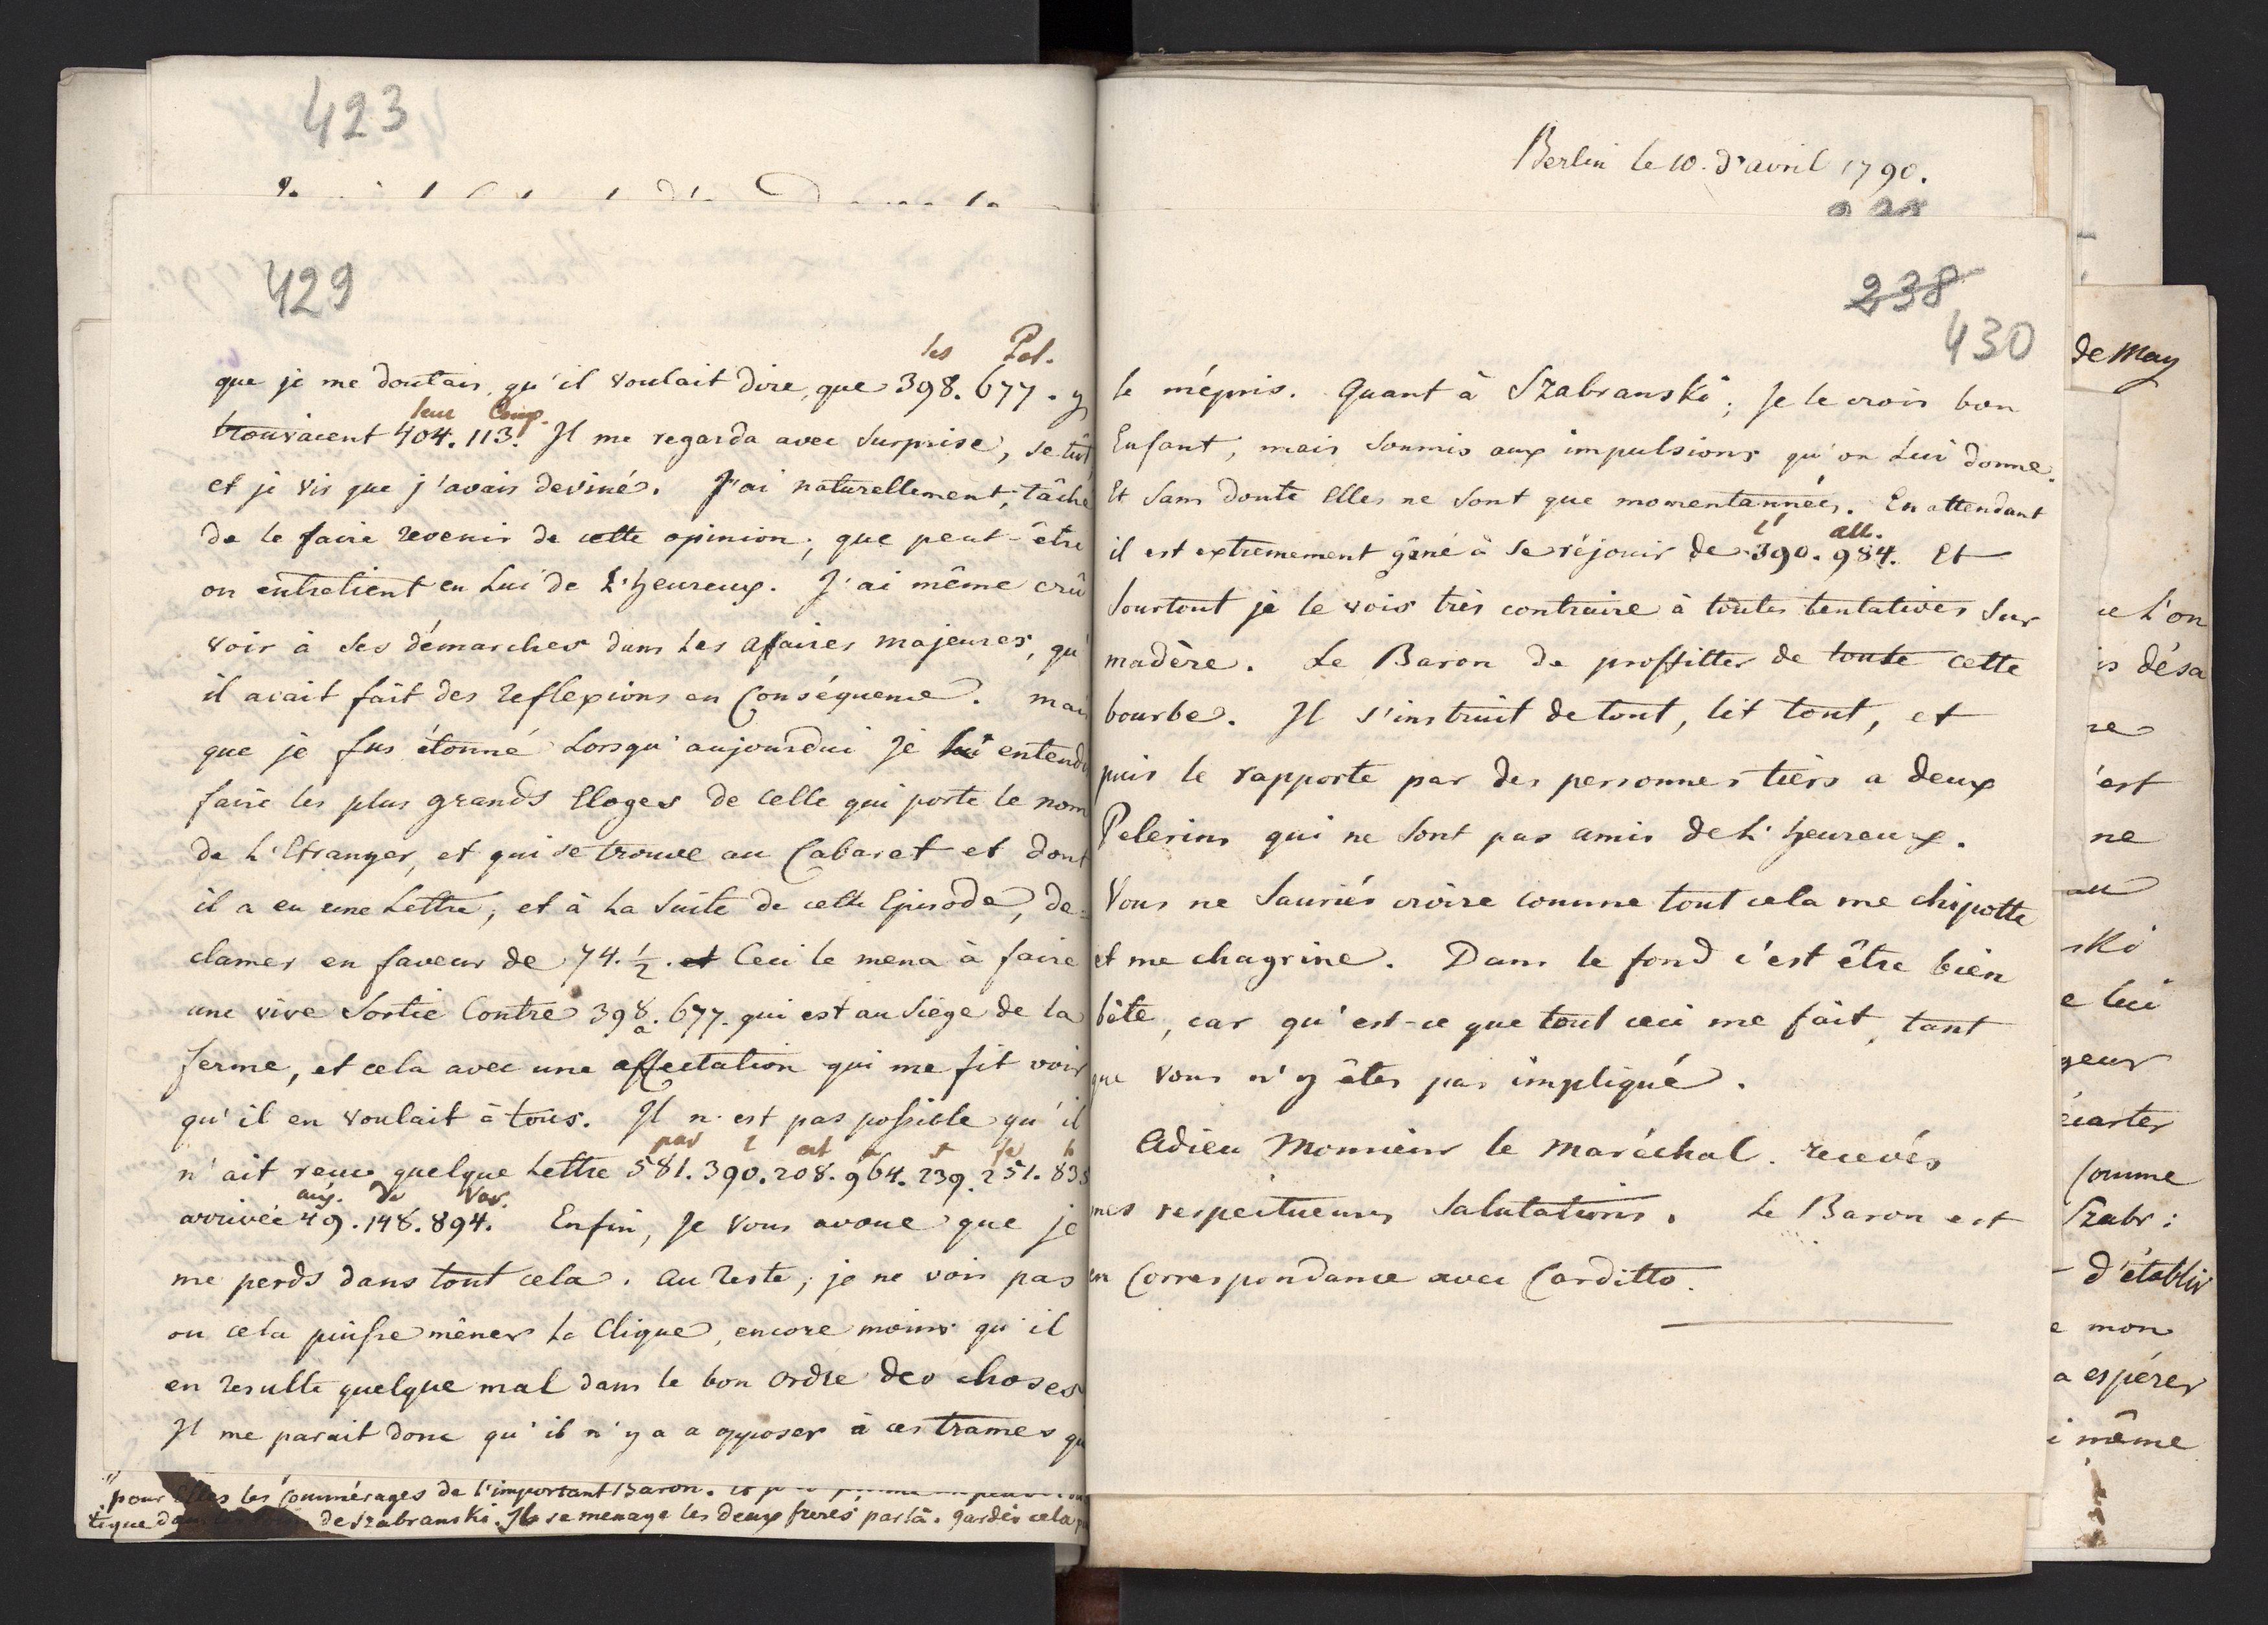 423
429
les Pol.
que je me doutais, qu'il voulait dire, que 398. 677. y
leur Comp.
trouvaient 404. 113. Il me regarda avec surprise, se tût
et je vis que j'avais deviné. J'ai naturellement, tâché
de le faire revenir de cette opinion, que peut-être
on entretient en Lui de L'heureux. J'ai même crû
voir à ses démarches dans les affaires majeures, qu'
il avait fait des reflexions en Conséquence. mais
que je fus étonné Lorsqu'aujourdui je lui entendis
faire les plus grands Eloges de Celle qui porte le nom
de L'Etranger, et qui se trouve au Cabaret et dont
il a eu une Lettre, et à La Suite de cette Episode, de-
clamer en faveur de 74. ½. et Ceci le mena à faire
une vive Sortie Contre 398. 677. qui est au Siège de la
ferme, et cela avec une affectation qui me fit voir
qu'il en voulait à tous. Il n'est pas possible qu'il
par l est a
n'ait reçue quelque Lettre 581. 390. 208. 964. 239. 251. 835
auj. de Var.
arrivée 49. 148. 894. Enfin, je vous avoue que je
me perds dans tout cela. au Reste, je ne vois pas
ou cela puisse mêner La Clique, encore moins qu'il
en resulte quelque mal dans le bon ordre des choses
Il me parait donc qu'il n'y a a opposer à ces trames qu
pour Elles les Commérages de l'important Baron.
tique de Szabranski. Il se menage les deux freres par là. gardés cela
Berlin le 10. d'avril 1790.
238
430
le mépris. Quant à Szabranski; je le crois bon
Enfant, mais soumis aux impulsions qu'on Lui donne.
Et sans doute Elles ne sont que momentannées. En attendant
l' all.
il est extremement gêné à se réjouir de 390. 984. Et
Surtout je le vois très contraire à toutes tentatives sur
madère. Le Baron de proffitter de toute cette
bourbe. Il s'instruit de tout, lit tout, et
puis le rapporte par des personnes tiers a deux
Pelerins qui ne sont pas amis de L'heureux.
Vous ne sauriés croire comme tout cela me chipotte
et me chagrine. Dans le fond c'est être bien
bête, car qu'est-ce que tout ceci me fait, tant
que vous n'y êtes pas impliqué.
Adieu Monsieur le Maréchal. recevés
mes respectueuses Salutations. Le Baron est
en Correspondance avec Carditto.
de May
ue L'on
is désa
re
'est
ne
au
ski
e lui
geur
écarter
Comme
Szabr:
d'établir
e mon
a espérer
i même